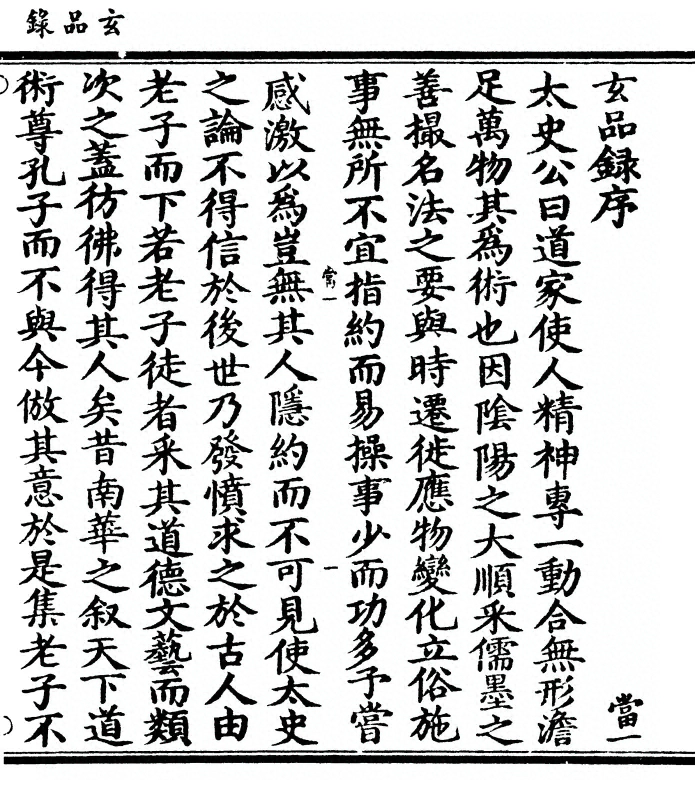 玄品錄
玄品録序
當一
太史公曰道家使人精神專一動合無形澹
足萬物其爲術也因陰陽之大順采儒墨之
善撮名法之要與時遷徙應物變化立俗施
事無所不宜指約而易操事少而功多予嘗
當一
一
感激以爲豈無其人隱約而不可見使太史
之論不得信於後世乃發憤求之於古人由
老子而下若老子徒者采其道德文藝而類
次之蓋彷彿得其人矣昔南華之叙天下道
術尊孔子而不與今倣其意於是集老子不